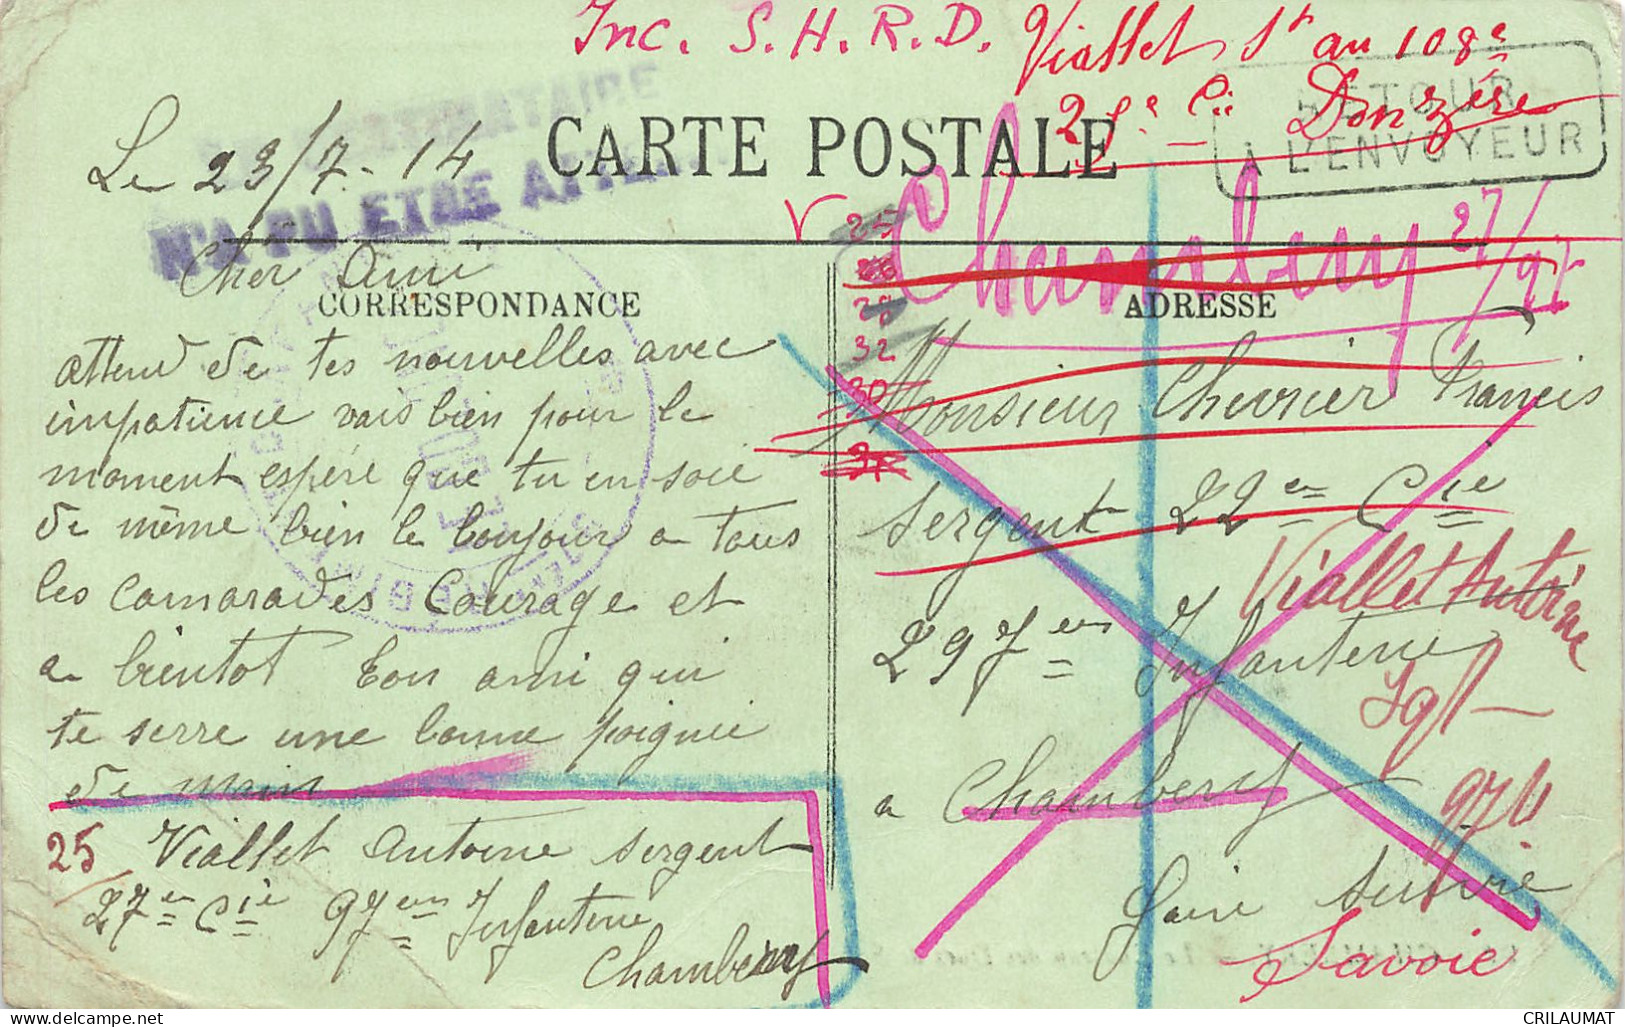 Inc. S. H. R. D. Viallet Sᵗ au 108ᵉ
2 Cie Donzère
RETOUR
A L'ENVOYEUR
DESTINATAIRE
N'A PU ETRE ATTEINT
CARTE POSTALE
Le 23/7-14
Chambery 27/97
25
28
32
30
CORRESPONDANCE
ADRESSE
Cher ami
attend de tes nouvelles avec
impatience vais bien pour le
moment espére que tu en soie
de même bien le bonjour a tous
les camarades Courage et
a bientot Ton ami qui
te serre une bonne poignée
de main
25 Viallet Antoine sergent
27 en Cie 97 em Infanterie
Chambery
Monsieur Chevrier Francis
Sergent 22 e Cie
297 em Infanterie
a Chambery
faire suivre
Savoie
Viallet Antoine
Sgt
97
CRILAUMAT